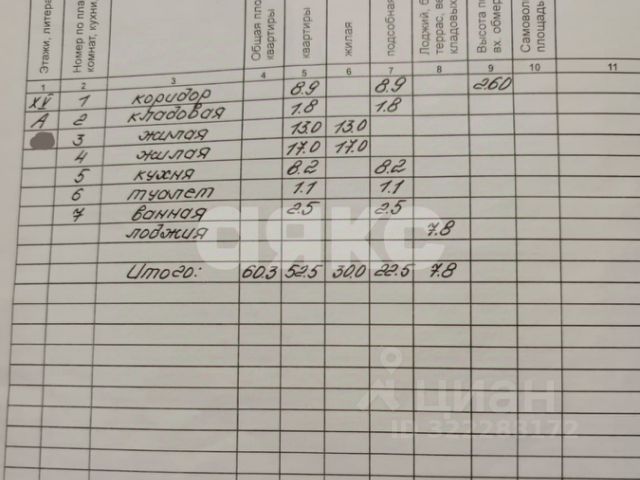 Этажи, литера
Номер по пла
комнат, кухни
Общая пло
квартиры
квартиры
жилая
подсобная
Лоджий, б
террас, ве
кладовых
Высота по
вх. обмер
Самоволь
площадь
1 2 3 4 5 6 7 8 9 10 11
XV 1 коридор 8.9 8.9 2.60
А 2 кладовая 1.8 1.8
3 жилая 13.0 13.0
4 жилая 17.0 17.0
5 кухня 8.2 8.2
6 туалет 1.1 1.1
7 ванная 2.5 2.5
лоджия 7.8
Итого: 60.3 52.5 30.0 22.5 7.8
аякс
циан
ID 323283172